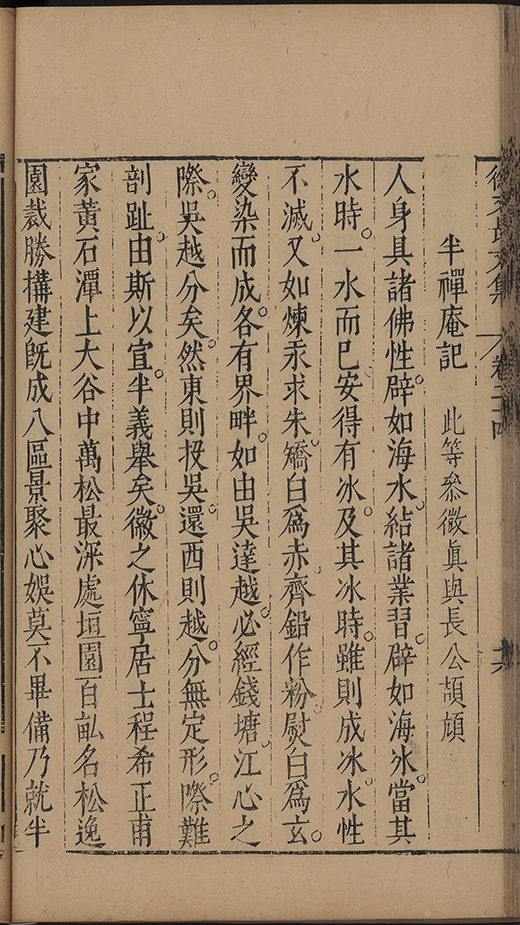 徐文長文集 卷二十四
半禪庵記 此等叅微眞與長公頡頏
人身具諸佛性。辟如海水。結諸業習。辟如海冰。當其
水時。一水而巳。安得有冰。及其冰時。雖則成冰。水性
不滅。又如煉汞求朱。矯白爲赤。齊鉛作粉。熨白爲玄。
變染而成。各有界畔。如由吳達越。必經錢塘。江心之
際。吳越分矣。然東則投吳。還西則越。分無定形。際難
剖趾。由斯以宜。半義舉矣。徽之休寧居士程希正甫
家黃石潭上大谷中萬松最深處垣園百畝名松逸
園裁勝搆建旣成八區景聚心娛莫不畢備乃就半